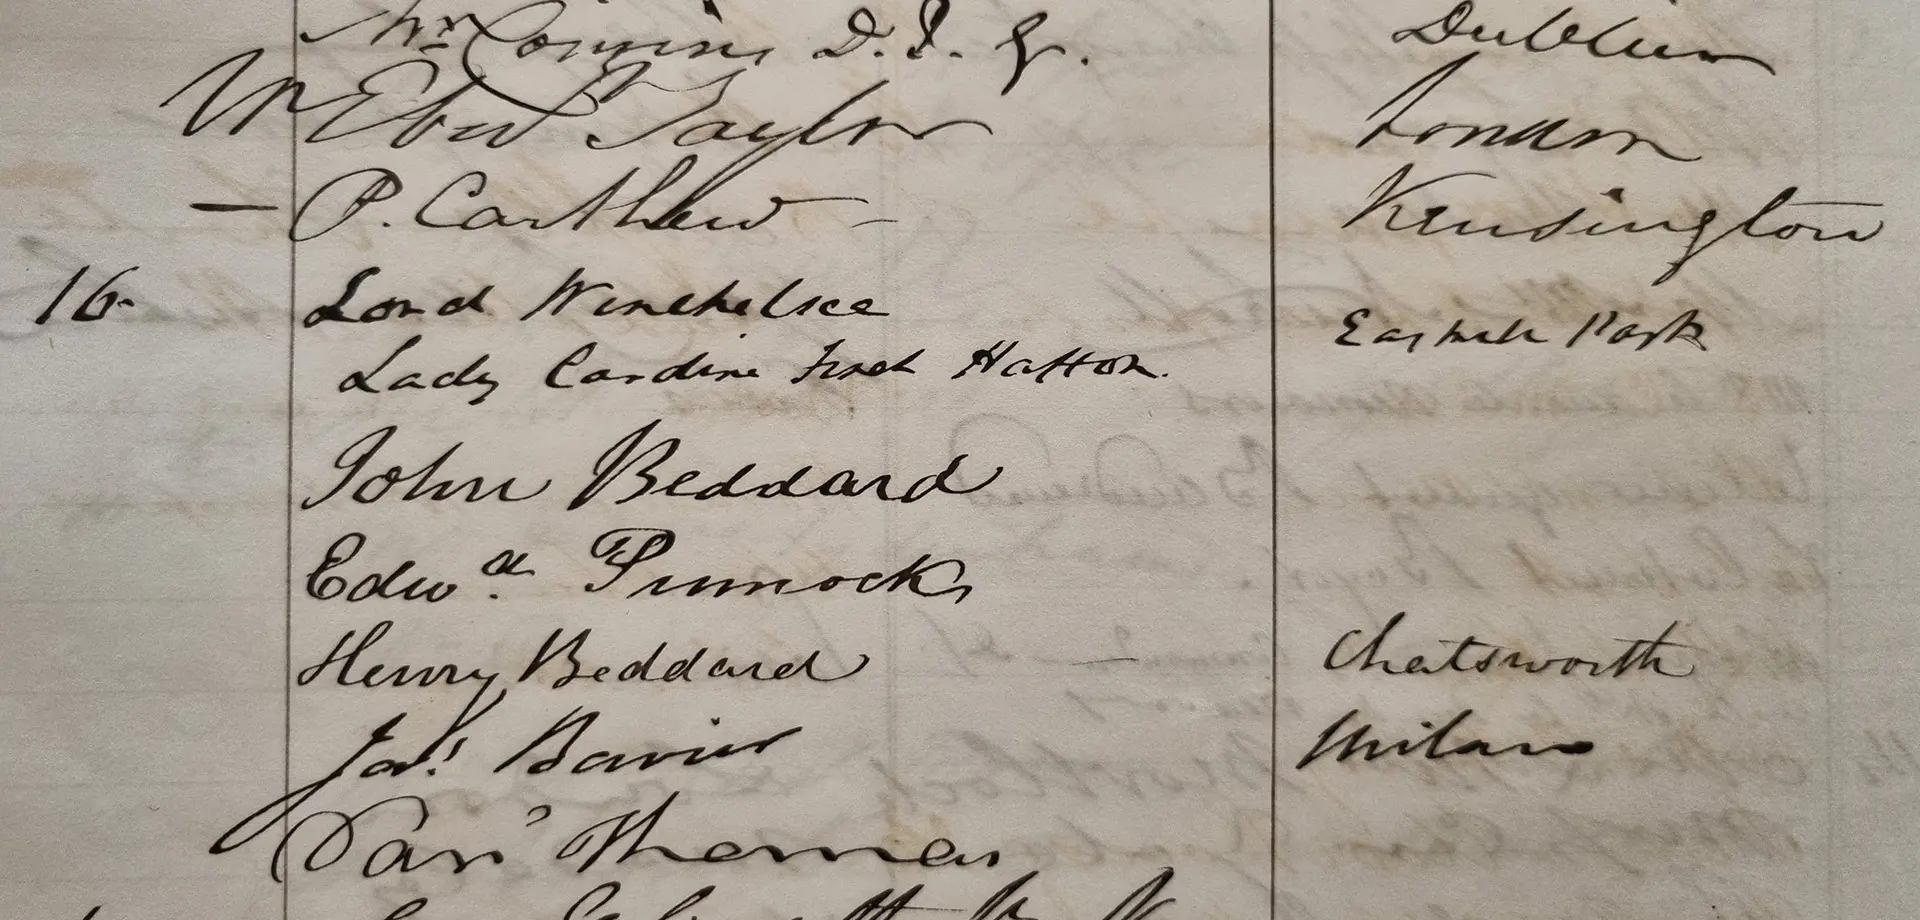 Dublin
Wm Eben Taylor London
— P. Carthew — Kensington
16- Lord Winchelsea
Eastwell Park
Lady Caroline Finch Hatton.
John Beddard
Edwd. Pinnock
Henry Beddard Chatsworth
Jas. Milan
Danl Thomas